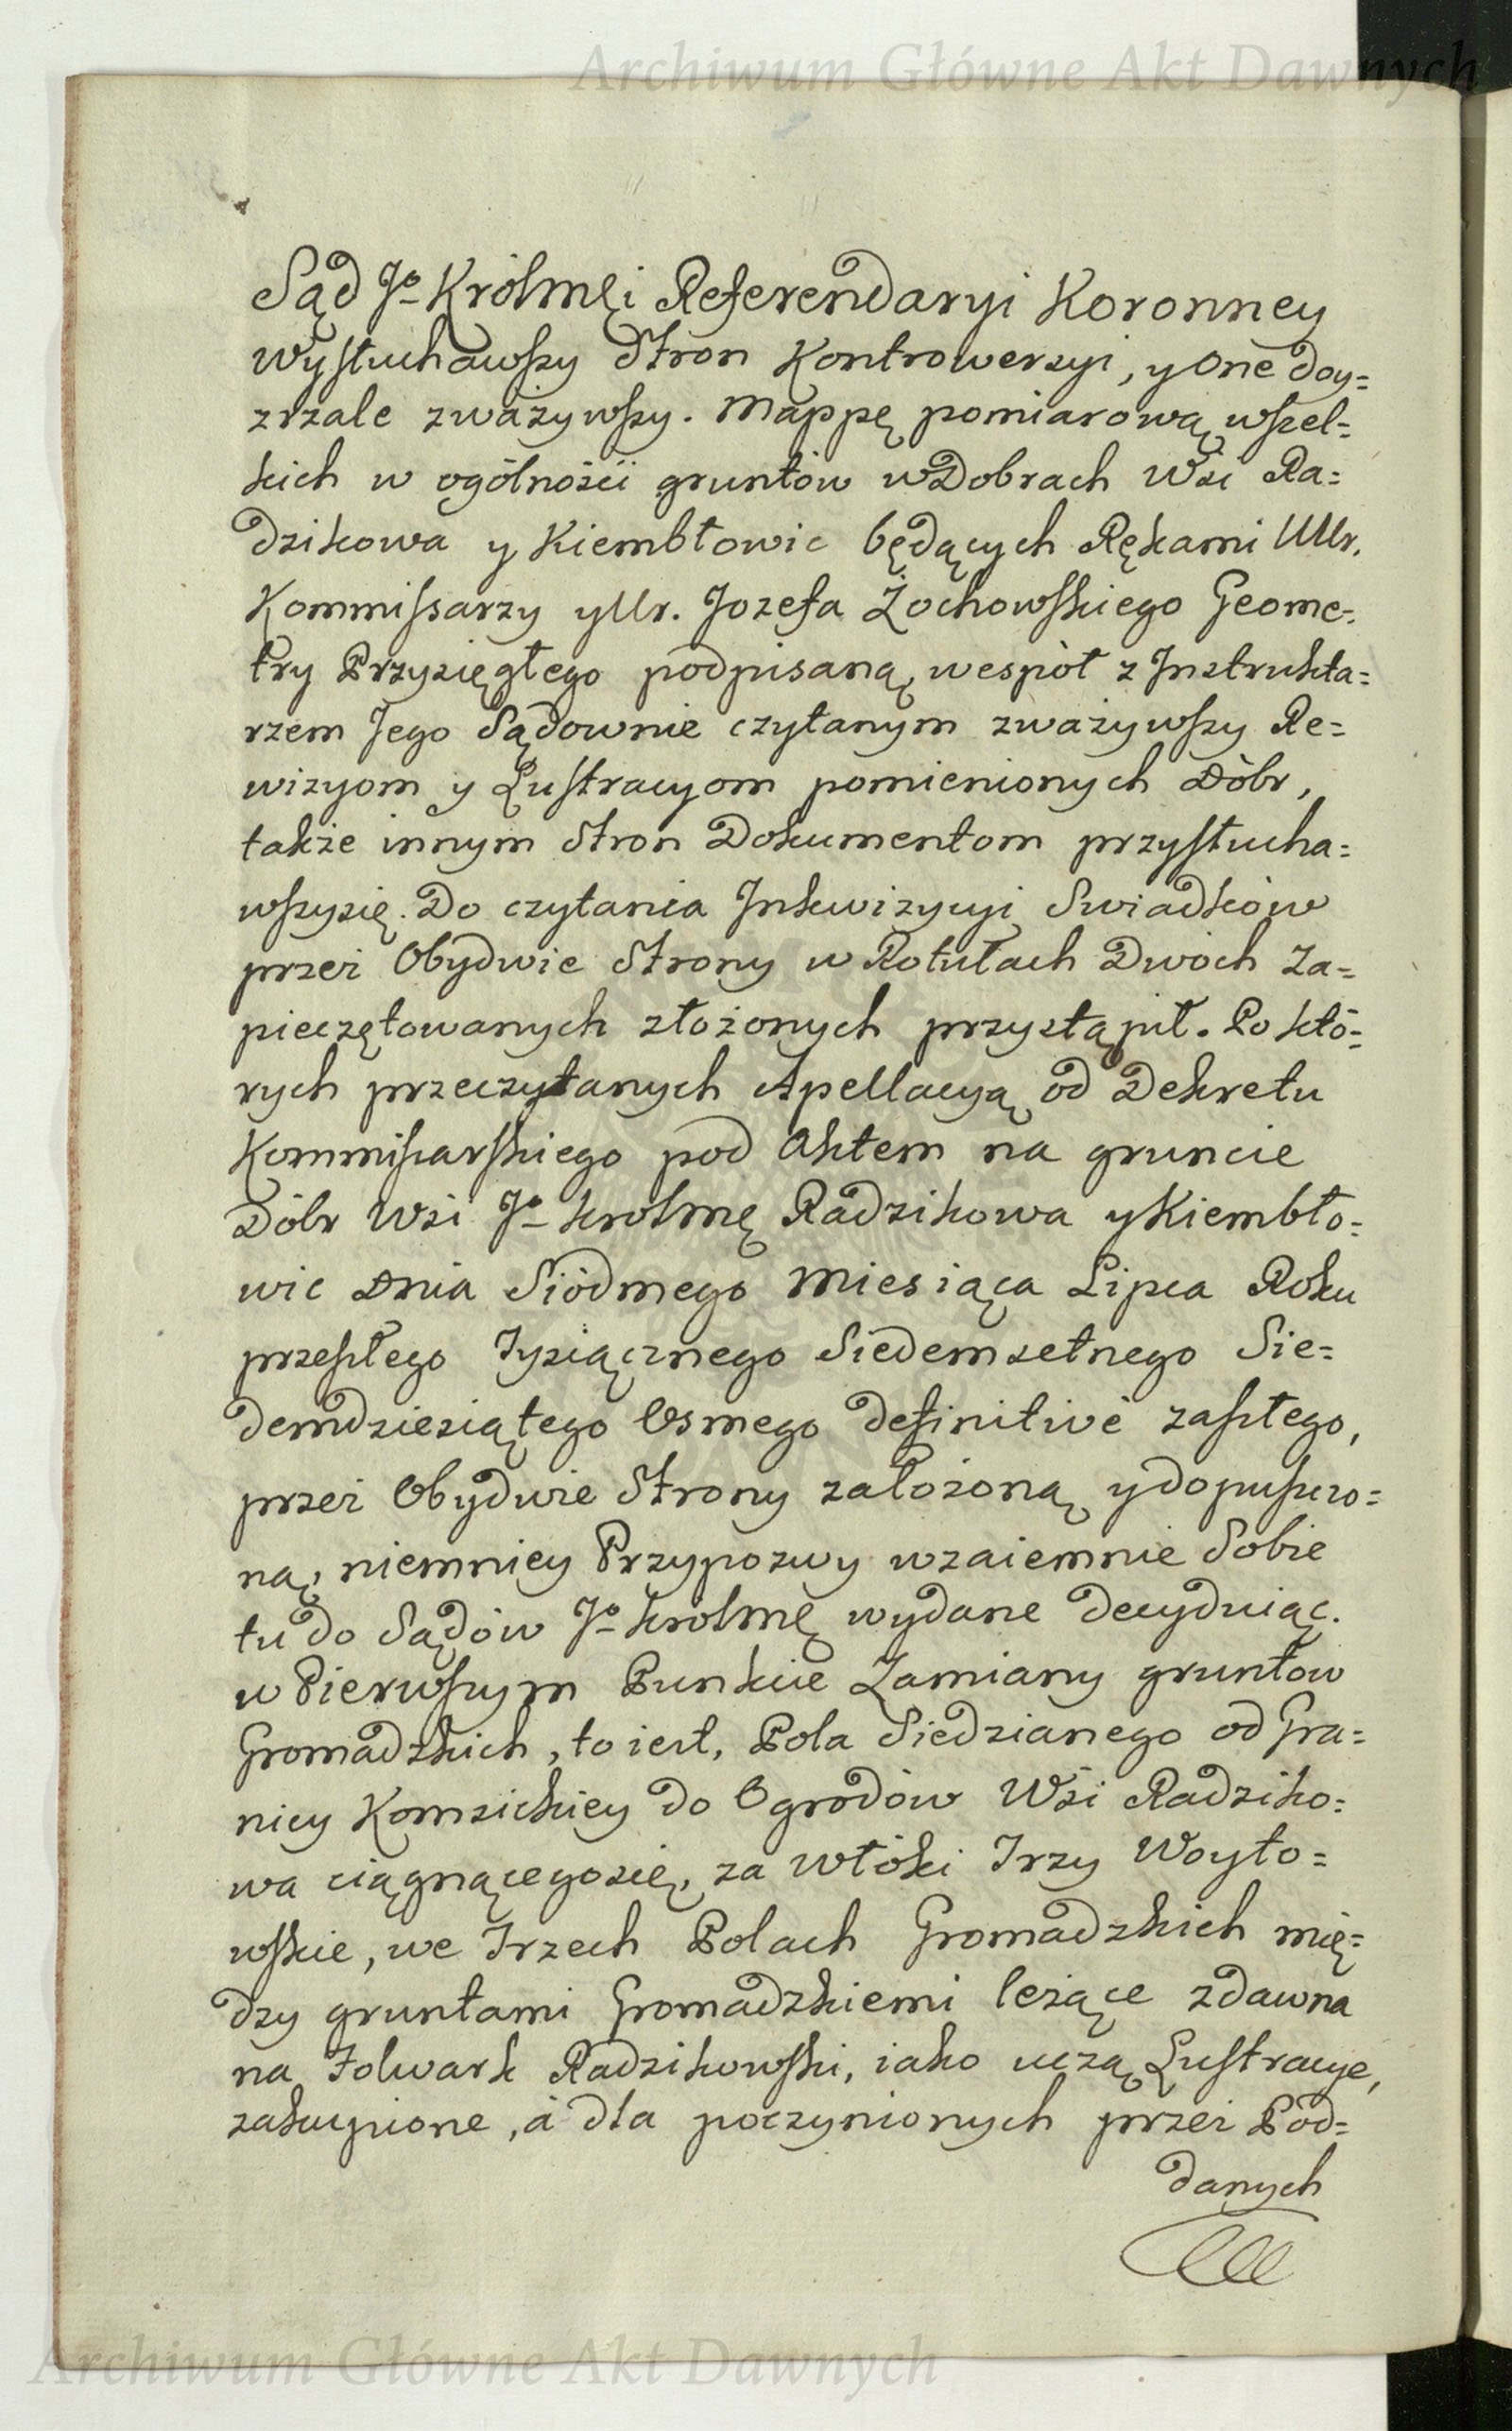 Archiwum Główne Akt Dawnych
Sąd Jº Królmći Referendaryi Koronney
Wysłuchawszy Stron Kontrowersyi, y One doy=
zrzale zważywszy. Mappę pomiarową wszel=
kich w ogólności gruntów w Dobrach Wsi Ra=
dzikowa y Kiembłowic będących Rękami Ullr.
Kommissarzy y Ur. Jozefa Żochowskiego Geome=
try Przysięgłego podpisaną, wespół z Instrukta=
rzem Jego Sądownie czytanym zważywszy Re=
wizyom y Lustracyom pomienionych Dóbr,
także innym Stron Dokumentom przysłucha=
wszysię. Do czytania Inkwizycyi Swiadków
przez Obydwie Strony w Rotułach Dwóch Za=
pieczętowanych złożonych przystąpił. Po któ=
rych przeczytanych Apellacyą od Dekretu
Kommissarskiego pod Aktem na gruncie
Dóbr Wsi Jº Krolmę Radzikowa y Kiembło=
wic Dnia Siódmego Miesiąca Lipca Roku
przeszłego Tysiącznego Siedemsetnego Sie=
demdziesiątego Osmego definitivè zaszłego,
przez Obydwie Strony założoną y dopuszczo=
ną, niemniey Przypozwy wzaiemnie Sobie
tu do Sądów Jº Krolmę wydane decyduiąc.
w Pierwszym Punkcie Zamiany gruntow
Gromadzkich, to iest, Pola Siedzianego od Gra=
nicy Komsickiey do Ogrodów Wsi Radziko=
wa ciągnącegosię, za Włóki Trzy Woyto=
wskie, we Trzech Polach Gromadzkich mię=
dzy gruntami Gromadzkiemi leżące zdawna
na Folwark Radzikowski, iako uczą Lustracye,
zakupione, á dla poczynionych przez Pod=
danych
Archiwum Główne Akt Dawnych